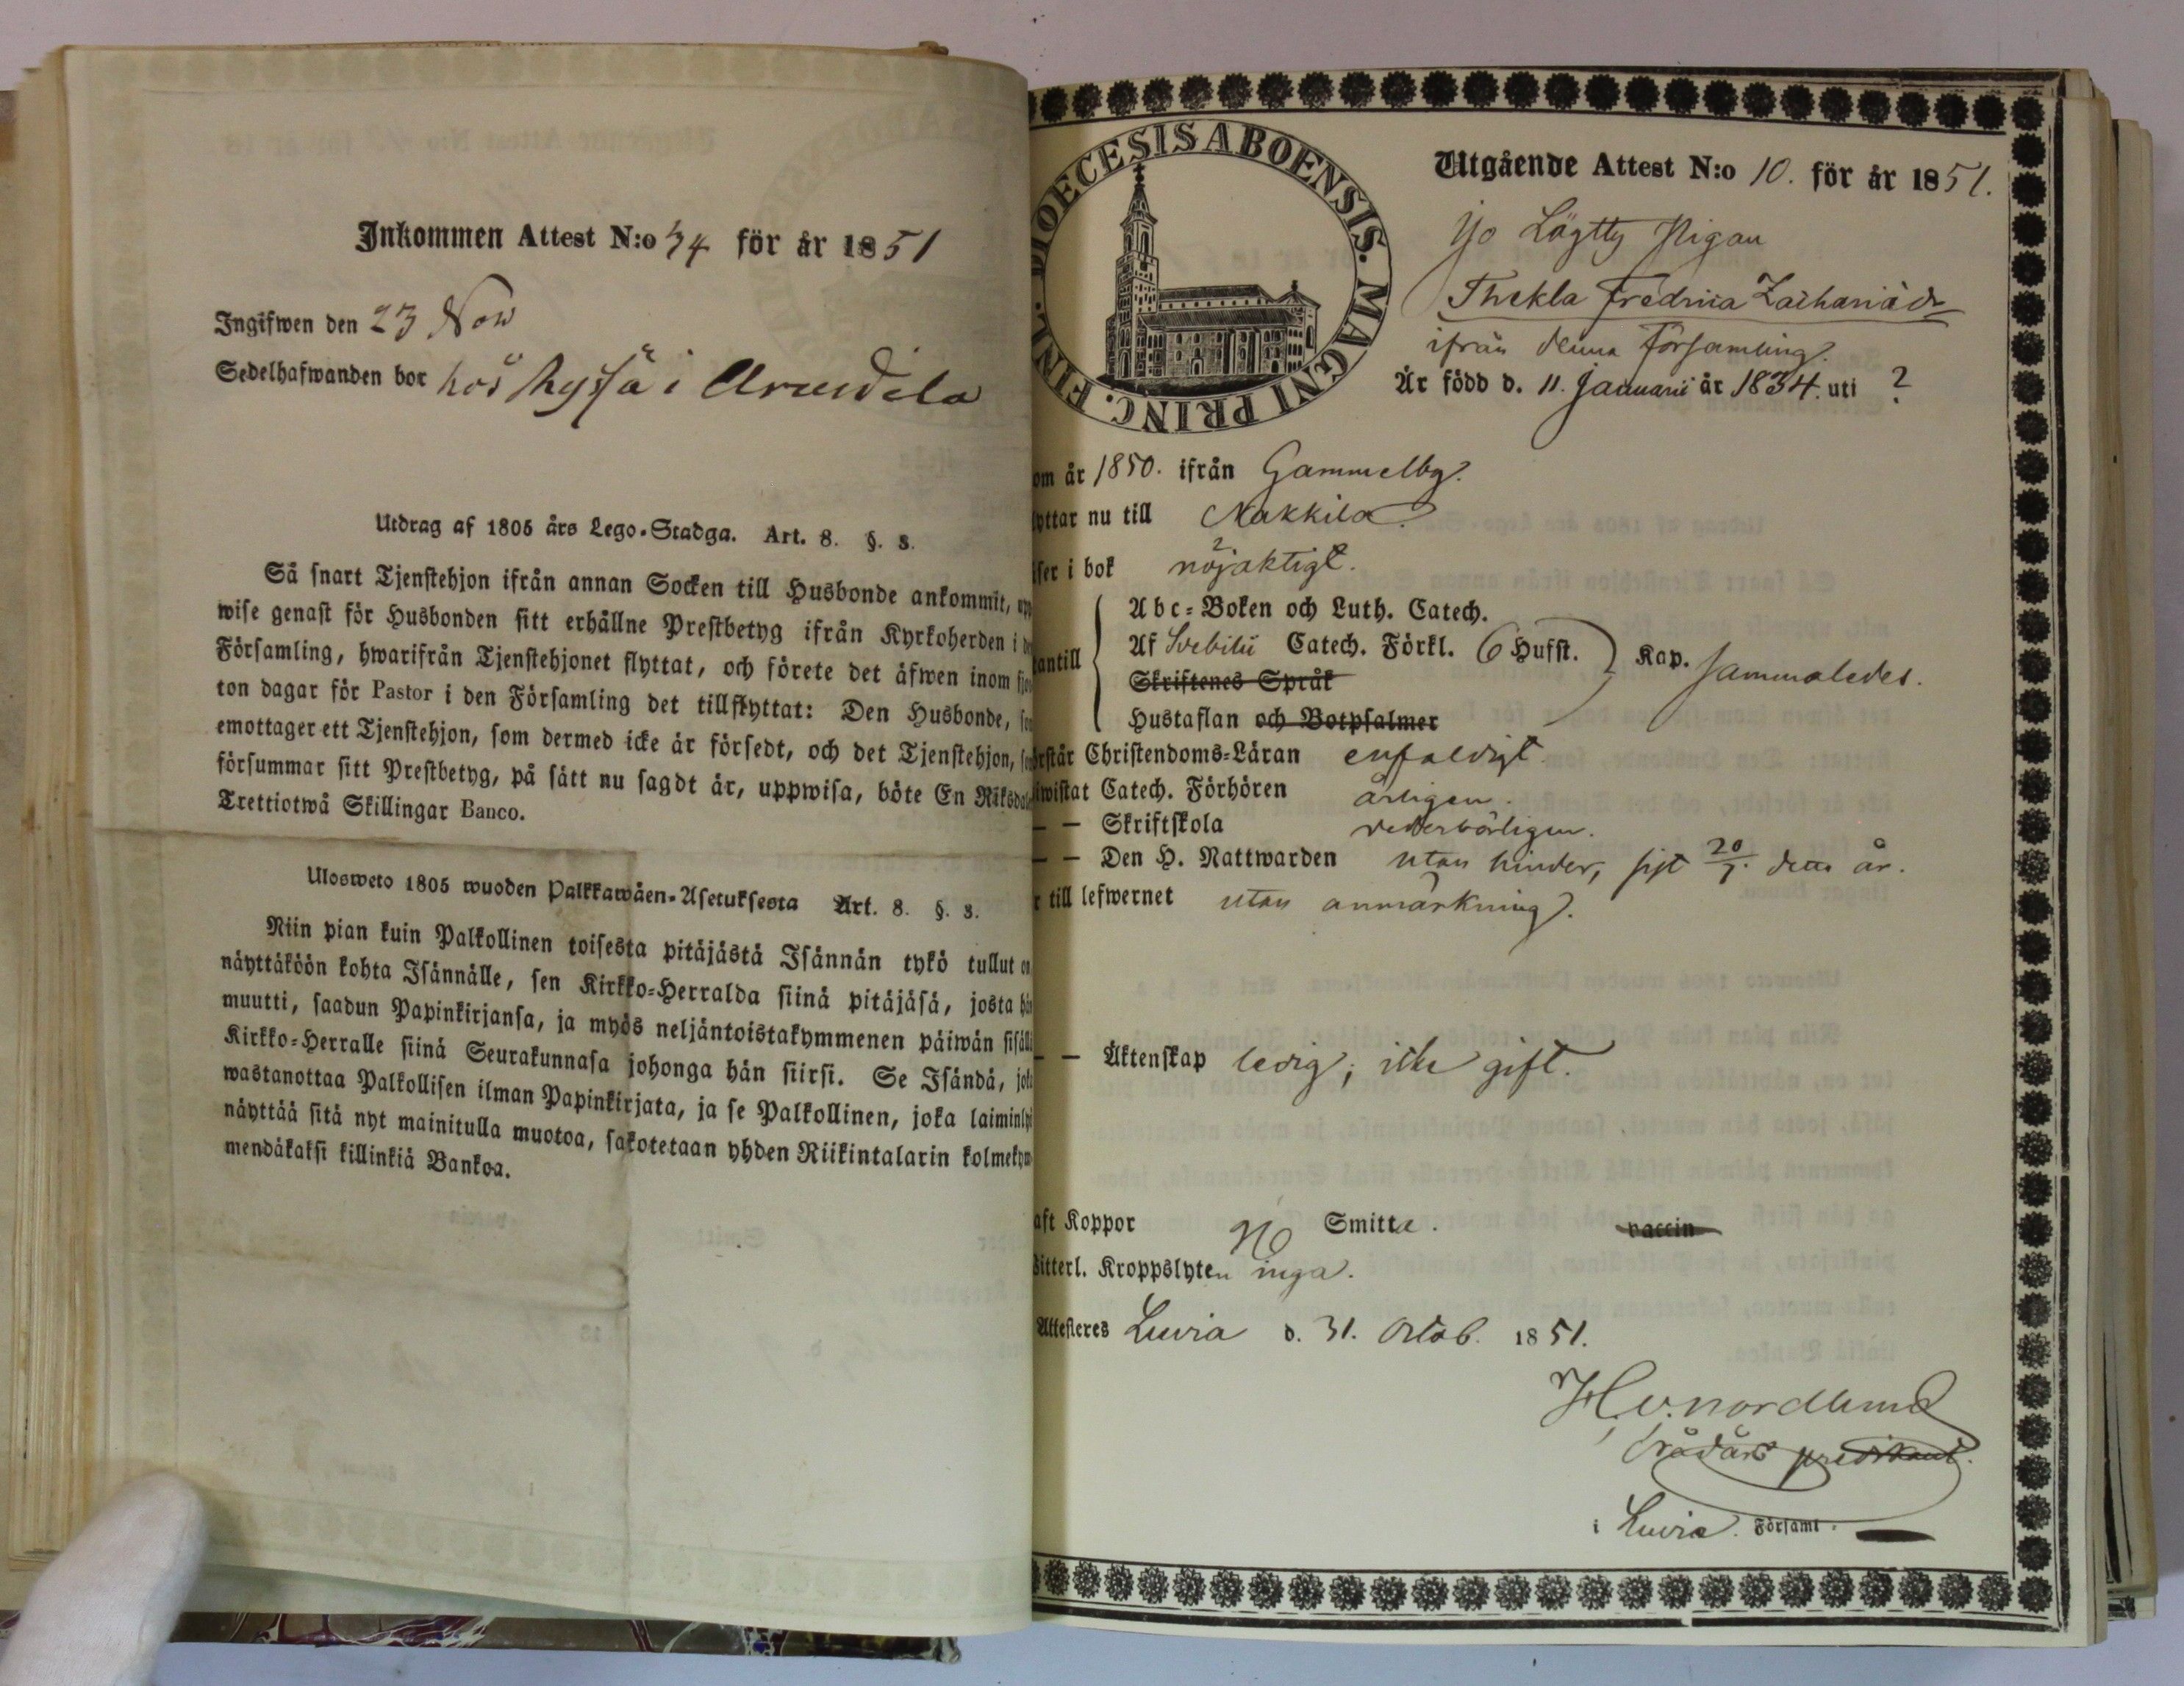 Inkommen Attest N:o 34 för år 1851
Ingifwen den 23 Now
Sedelhafwanden bor hos i
Utdrag af 1805 års Lego-Stadga. Art. 8. §. 3.
Så snart Tjenstehjon ifrån annan Socken till Husbonde ankommit, upp
wise genast för Husbonden sitt erhållne Prestbetyg ifrån Kyrkoherden i
Församling, hwarifrån Tjenstehjonet flyttat, och förete det äfwen inom
ton dagar för Pastor i den Församling det tillflyttat: Den Husbonde,
emottager ett Tjenstehjon, som dermed icke är försedt, och det Tjenstehjon,
försummar sitt Prestbetyg, på sätt nu sagdt är, uppwisa, böte En Riksdal
Trettiotwå Skillingar Banco.
Ulosweto 1805 wuoden Palkkawäen-Asetuksesta Art. 8. §. 3.
Niin pian kuin Palkollinen toisesta pitäjästä Isännän tykö tullut on
näyttäköön kohta Isännälle, sen Kirkko-Herralda siinä pitäjäsä, josta hän
muutti, saadun Papinkirjansa, ja myös neljäntoistakymmenen päiwän sisällä
Kirkko-Herralle siinä Seurakunnasa johonga hän siirsi. Se Isändä, joka
wastanottaa Palkollisen ilman Papinkirjata, ja se Palkollinen, joka laiminly
näyttää sitä nyt mainitulla muotoa, sakotetaan yhden Riikintalarin kolmekym
mendäkaksi killinkiä Bankoa.
DIOECESIS ABOENSIS. MAGNI PRINC. FINL.
Utgående Attest N:o 10. för år 1851.
Pigan
Thekla Fredrica Zachariädr
ifrån denna församling.
Är född d. 11. Januarii år 1834. uti ?
om år 1850. ifrån Gammelby.
lyttar nu till Nakkila.
äser i bok nöjaktigt.
antill
Abc-Boken och Luth. Catech.
Af Svebilii Catech. Förkl. 6 Hufst. Kap. sammaledes.
Skriftenes Språk
Hustaflan och Botpsalmer
örstår Christendoms-Läran enfaldigt.
iwistat Catech. Förhören årligen.
— — Skriftskola vederbörligen.
— — Den H. Nattwarden utan hinder, sist 20/7. detta år.
r till lefwernet utan anmärkning.
— — Äktenskap ledig; icke gift.
aft Koppor Smitta.
vaccin
Witterl. Kroppslyten inga.
Attesteres Luvia d. 31. Octob. 1851.
H. v. Nordlund
i Luvia. Församl.